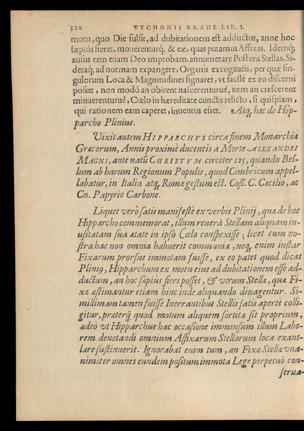 320 TYCHONIS BRAHE LIB. I.
motu, quo Die fulsit, ad dubitationem est adductus, anne hoc
sæpius fieret, mouerenturq́; & eæ, quas putamus Affixas. Idemq́;
ausus rem etiam Deo improbam, annumerare Posteris Stellas. Si-
deraq́; ad normam expangere. Organis excogitatis, per quæ sin-
gulorum Loca & Magnitudines signaret, vt facilè ex eo discerni
posset, non modò an obirent nascerenturué, item an crescerent
minuerenturué, Cœlo in hæreditate cunctis relicto, si quispiam,
qui rationem eam caperet, inuentus esset. Atq́; hæc de Hip-
parcho Plinius.
Vixit autem HIPPARCHVS circa finem Monarchiæ
Græcorum, Annis proximè ducentis à Morte ALEXANDRI
MAGNI, ante natũ CHRISTVM circiter 125, quando Bel-
lum ab harum Regionum Populis, quod Cimbricum appel-
labatur, in Italia atq́; Roma gestum est. Coss. C. Cæcilio, ac
Cn. Papyrio Carbone.
Liquet verò satis manifestè ex verbis Plinij, quæ de hoc
Hipparcho commemorat, illum reuerà Stellam aliquam in-
usitatam sua ætate in ipso Cœlo conspexisse; licet cum no-
stra hac non omnia habuerit communia, neq́; enim instar
Fixarum prorsus immotam fuisse, ex eo patet quod dicat
Plinius, Hipparchum ex motu eius ad dubitationem esse ad-
ductum, an hoc sæpius fieri posset, & vtrum Stellæ, quæ Fi-
xæ æstimantur etiam hinc inde aliquando diuagentur. Si-
millimam tamen fuisse Inerrantibus Stellis satis apertè colli-
gitur, præterq́; quod motum aliquem sortita sit proprium,
adeò vt Hipparchus hac occasione immensum illum Labo-
rem denotandi omnium Affixarum Stellarum loca exant-
lare sustinuerit. Ignorabat enim tum, an Fixæ Stellæ vna-
nimiter omnes eundem positum immota Lege perpetuò con-
serua-